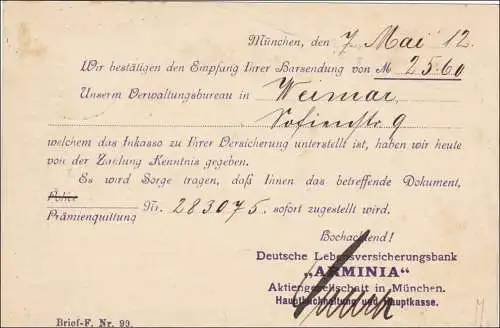 München, den 7. Mai 12.
Wir bestätigen den Empfang Ihrer Barsendung von M 25.60
Unserm Verwaltungsbureau in Weimar,
Sofienstr. 9
welchem das Inkasso zu Ihrer Versicherung unterstellt ist, haben wir heute
von der Zahlung Kenntnis gegeben.
Es wird Sorge tragen, daß Ihnen das betreffende Dokument,
Police
Prämienquittung Nr. 283075. sofort zugestellt wird.
Hochachtend!
Deutsche Lebensversicherungsbank
„ARMINIA“
Aktiengesellschaft in München.
Hauptbuchhaltung und Hauptkasse.
Brief-F. Nr. 99.